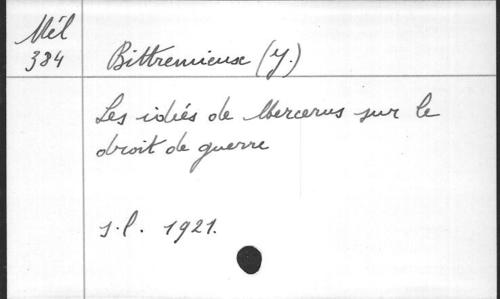 Mél
384
Bittremieux (J.)
Les idées de Mercerus sur le
droit de guerre
s.l. 1921.